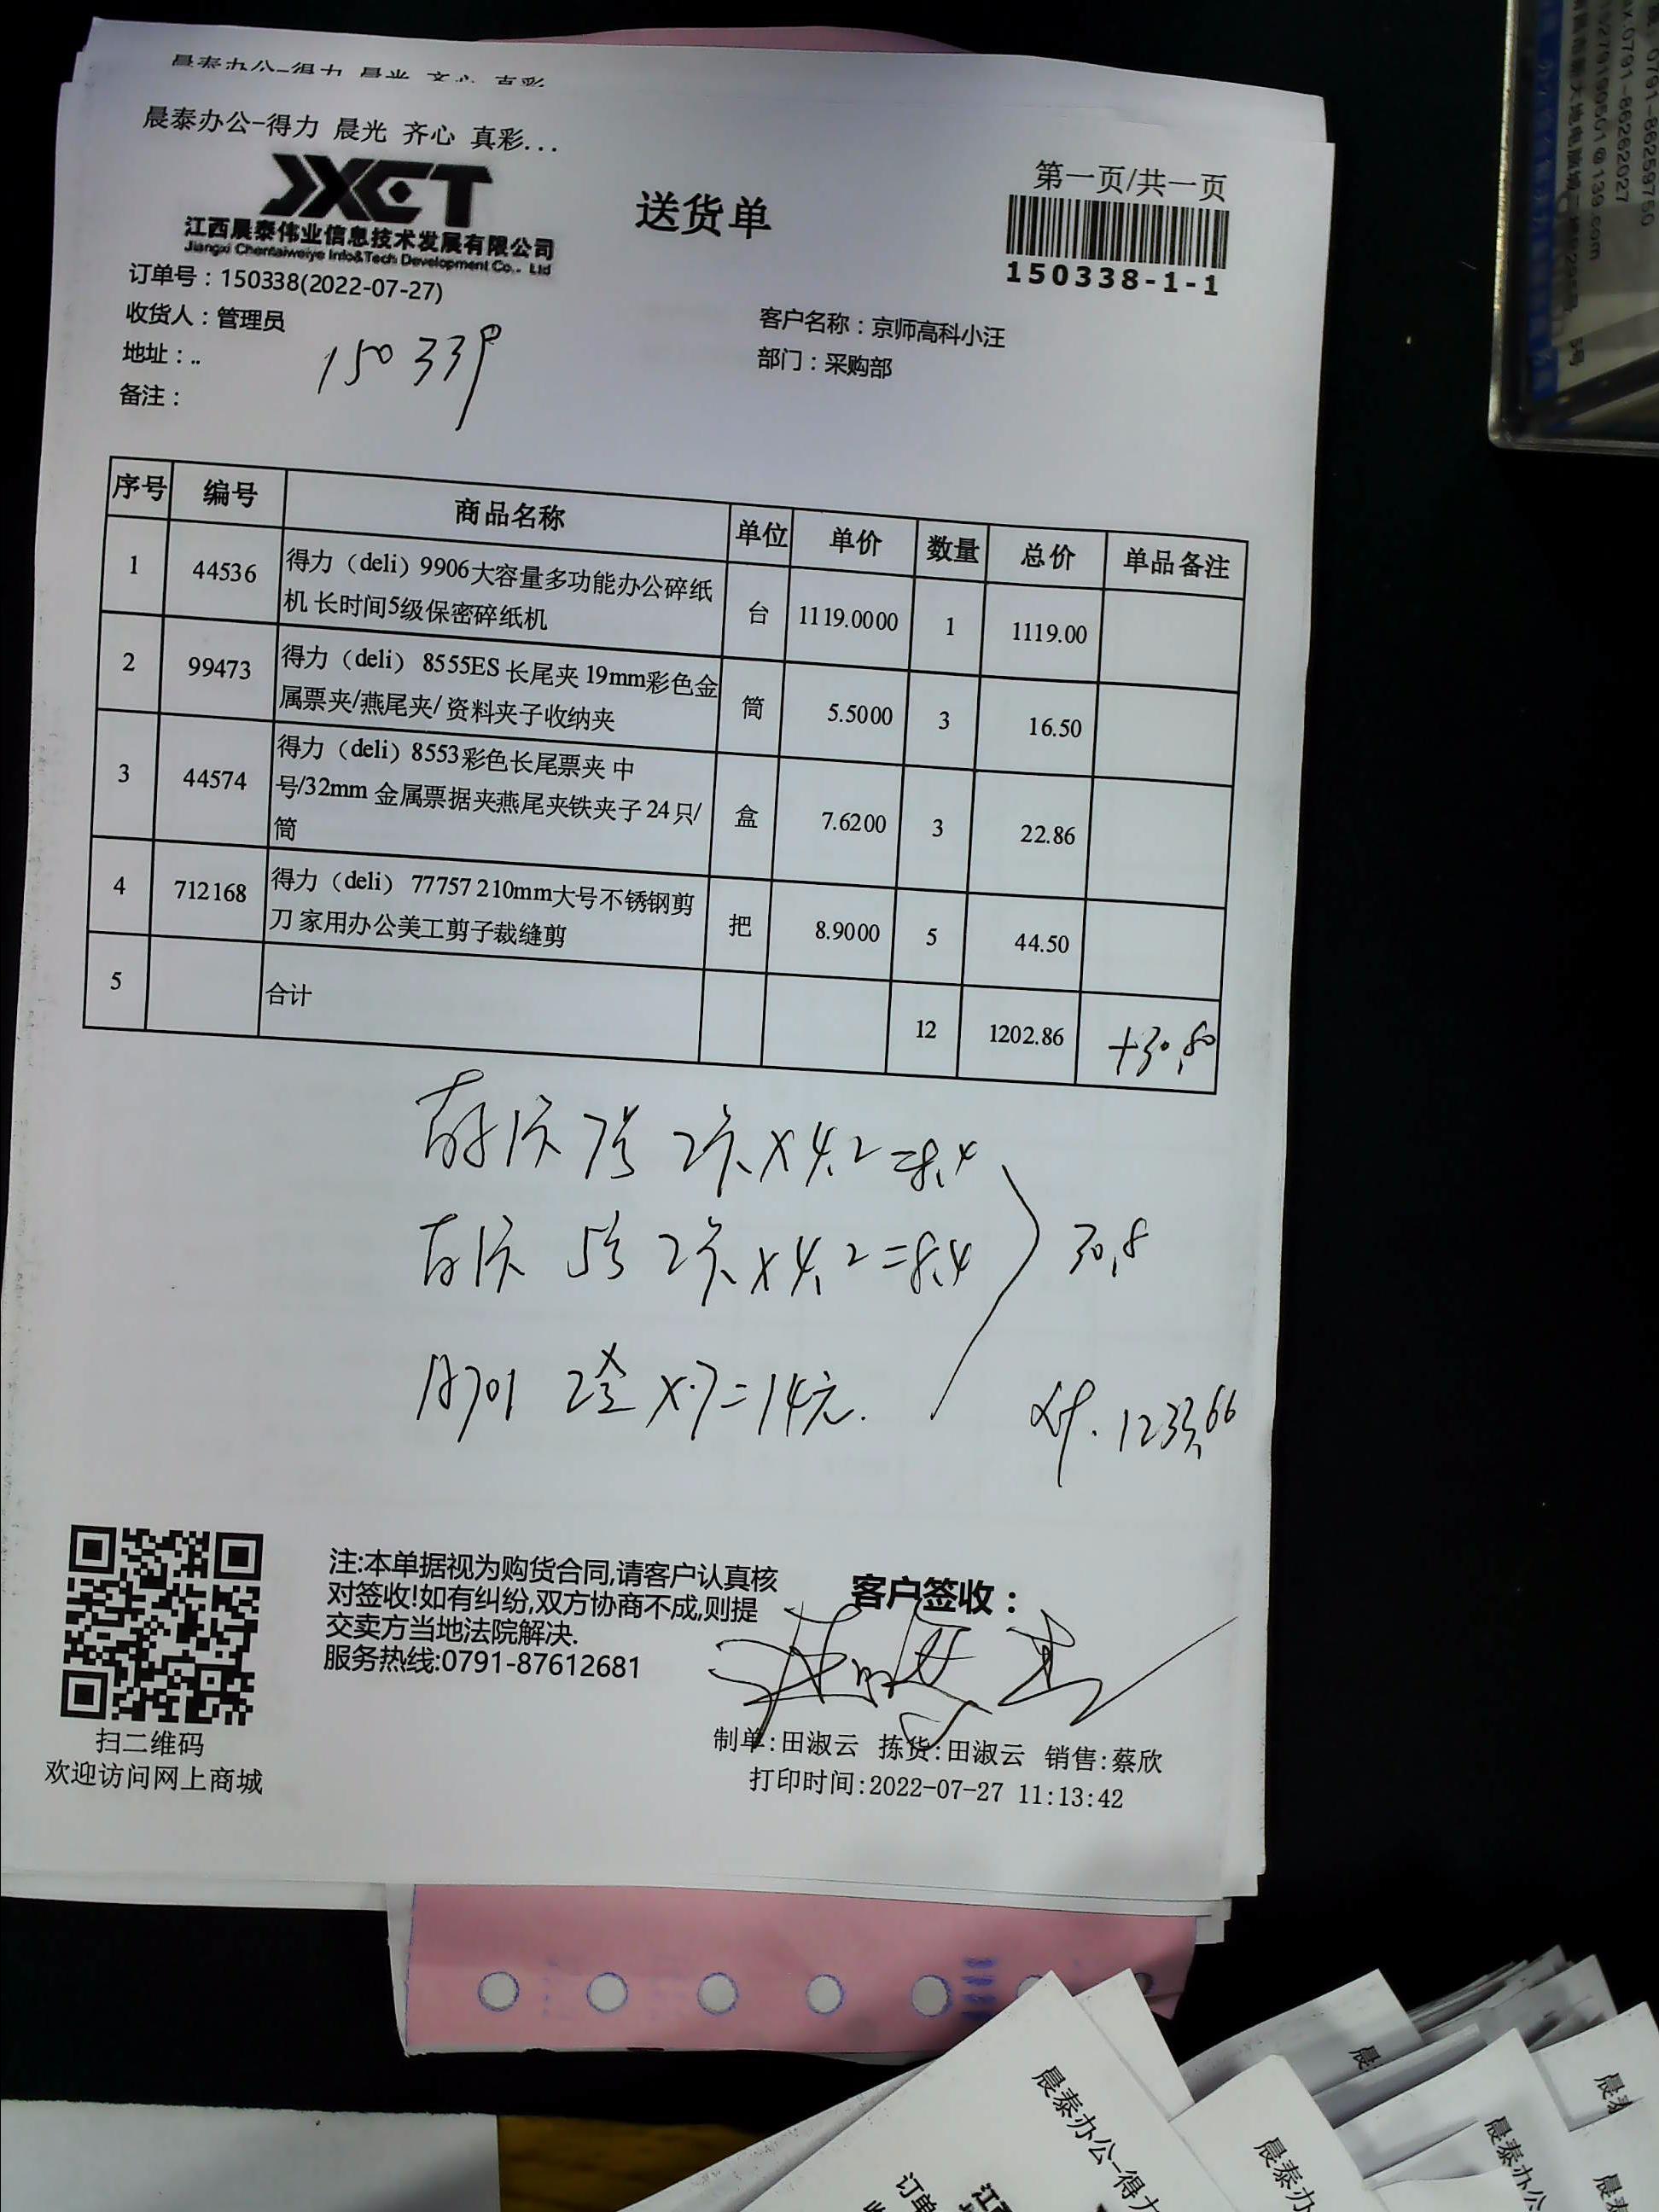 晨泰办公-得力 晨光 齐心 真彩
晨泰办公-得力 晨光 齐心 真彩...
JXCT
江西晨泰伟业信息技术发展有限公司
Jiangxi Chentaiweiye Info&Tech Development Co.. Ltd
送货单
第一页/共一页
150338-1-1
订单号：150338(2022-07-27)
收货人：管理员
客户名称：京师高科小汪
地址：..
部门：采购部
150339
备注：
序号 编号 商品名称 单位 单价 数量 总价 单品备注
1 44536 得力（deli）9906大容量多功能办公碎纸
机 长时间5级保密碎纸机 台 1119.0000 1 1119.00
2 99473 得力（deli） 8555ES 长尾夹 19mm彩色金
属票夹/燕尾夹/ 资料夹子收纳夹 筒 5.5000 3 16.50
3 44574 得力（deli）8553彩色长尾票夹 中
号/32mm 金属票据夹燕尾夹铁夹子 24只/
筒 盒 7.6200 3 22.86
4 712168 得力（deli） 77757 210mm大号不锈钢剪
刀 家用办公美工剪子裁缝剪 把 8.9000 5 44.50
5 合计 12 1202.86 +30.80
7号 2卡 X4.2=8.4
5号 2卡 X4.2=8.4
30.8
2 X7=14元.
1233.66
注:本单据视为购货合同,请客户认真核
对签收!如有纠纷,双方协商不成,则提
交卖方当地法院解决.
服务热线:0791-87612681
客户签收：
扫二维码
欢迎访问网上商城
制单:田淑云 拣货:田淑云 销售:蔡欣
打印时间:2022-07-27 11:13:42
晨泰办公-得力
订单
江西
晨泰办
晨泰办公
晨
晨泰